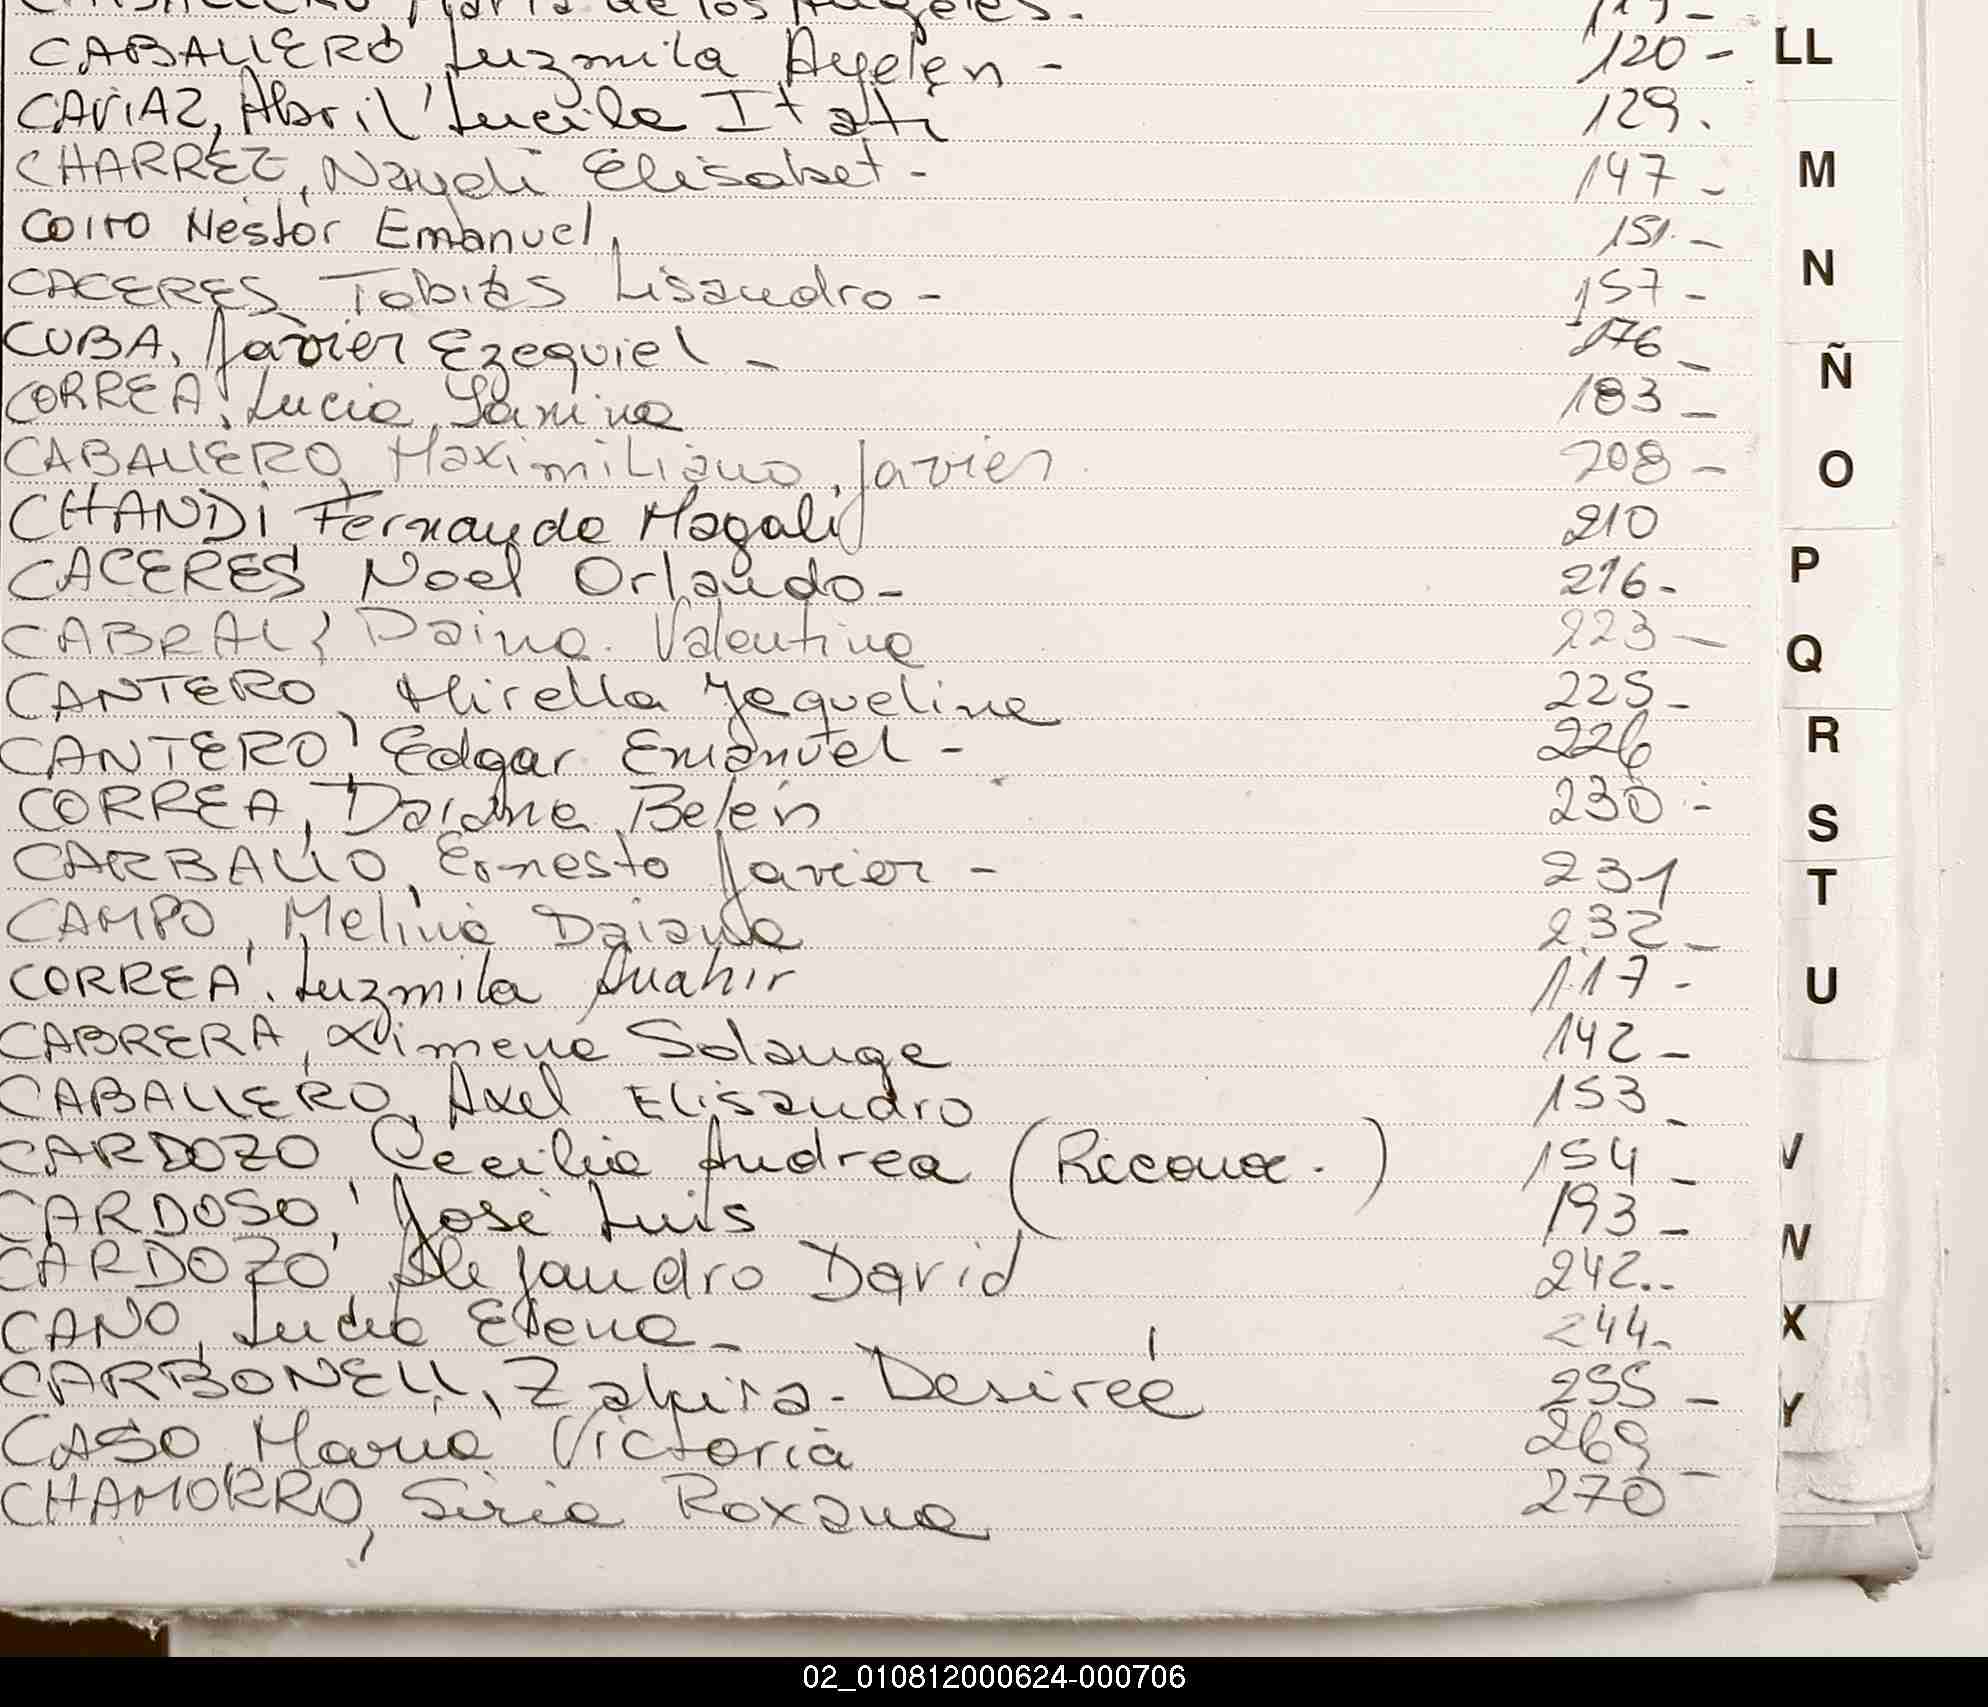 CABALLERO, María de los Angeles. 119-
CABALLERO Luzmila Ayelen - 120-
CAVIAZ, Abril Lucila Itatí 129.
CHARREZ, Nayeli Elisabet - 147-
COITO Nestor Emanuel, 151.-
CACERES Tobias Lisandro - 157-
CUBA, Javier Ezequiel - 176-
CORREA, Lucia Yanina 183-
CABALLERO, Maximiliano Javier. 208-
CHANDI Fernanda Magali 210
CACERES Noel Orlando- 216-
CABRAL, Daina Valentina 223-
CANTERO, Mirella Jaqueline 225-
CANTERO, Edgar Emanuel - 226
CORREA, Daiana Belén 230-
CARBALLO, Ernesto Javier - 231
CAMPO, Melina Daiana 232-
CORREA, Luzmila Anahir 117-
CABRERA, Ximena Solange 142-
CABALLERO, Axel Elisandro 153-
CARDOZO Cecilia Andrea (Reconoc.) 154-
CARDOSO, José Luis 193-
CARDOZO Alejandro David 242..
CANO, Lucia Elena- 244-
CARBONELL, Zahira- Desireé 255-
CASO, María Victoria 269-
CHAMORRO, Siria Roxana 270
LL
M
N
Ñ
O
P
Q
R
S
T
U
V
W
X
Y
02_010812000624-000706